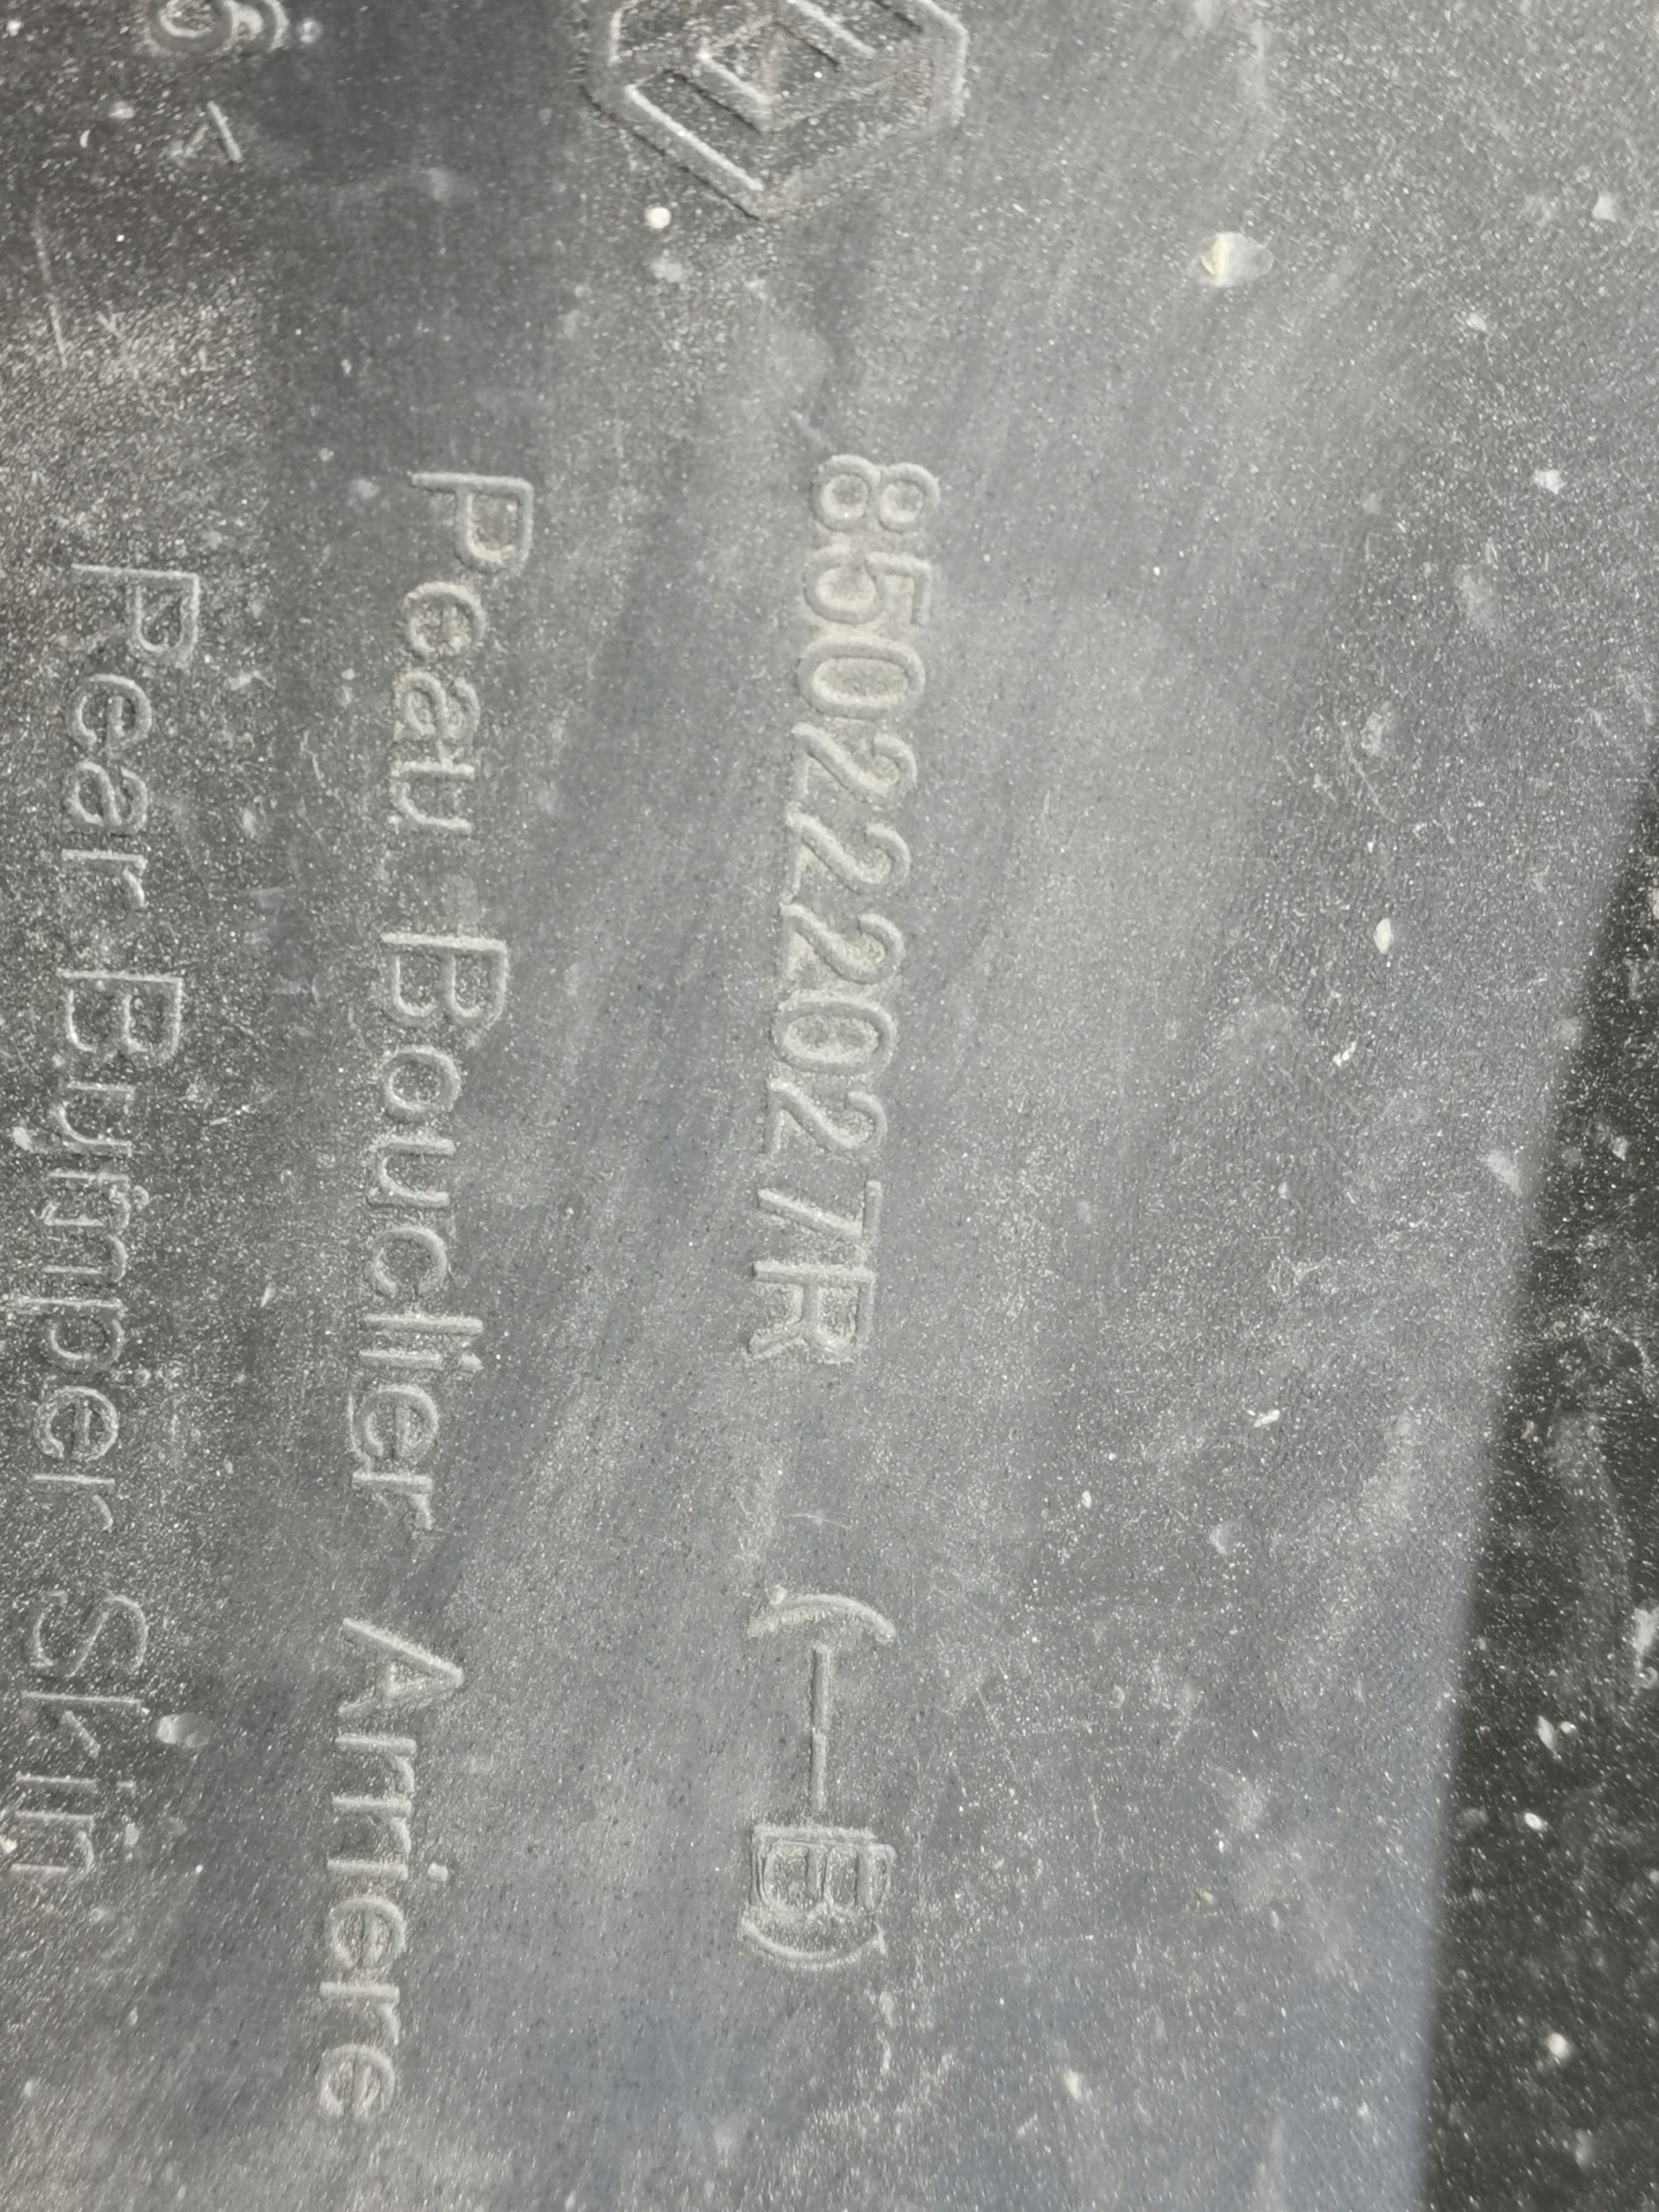 850222627R (--B)
Peau Bouclier Arriere
Rear Bumper Skin